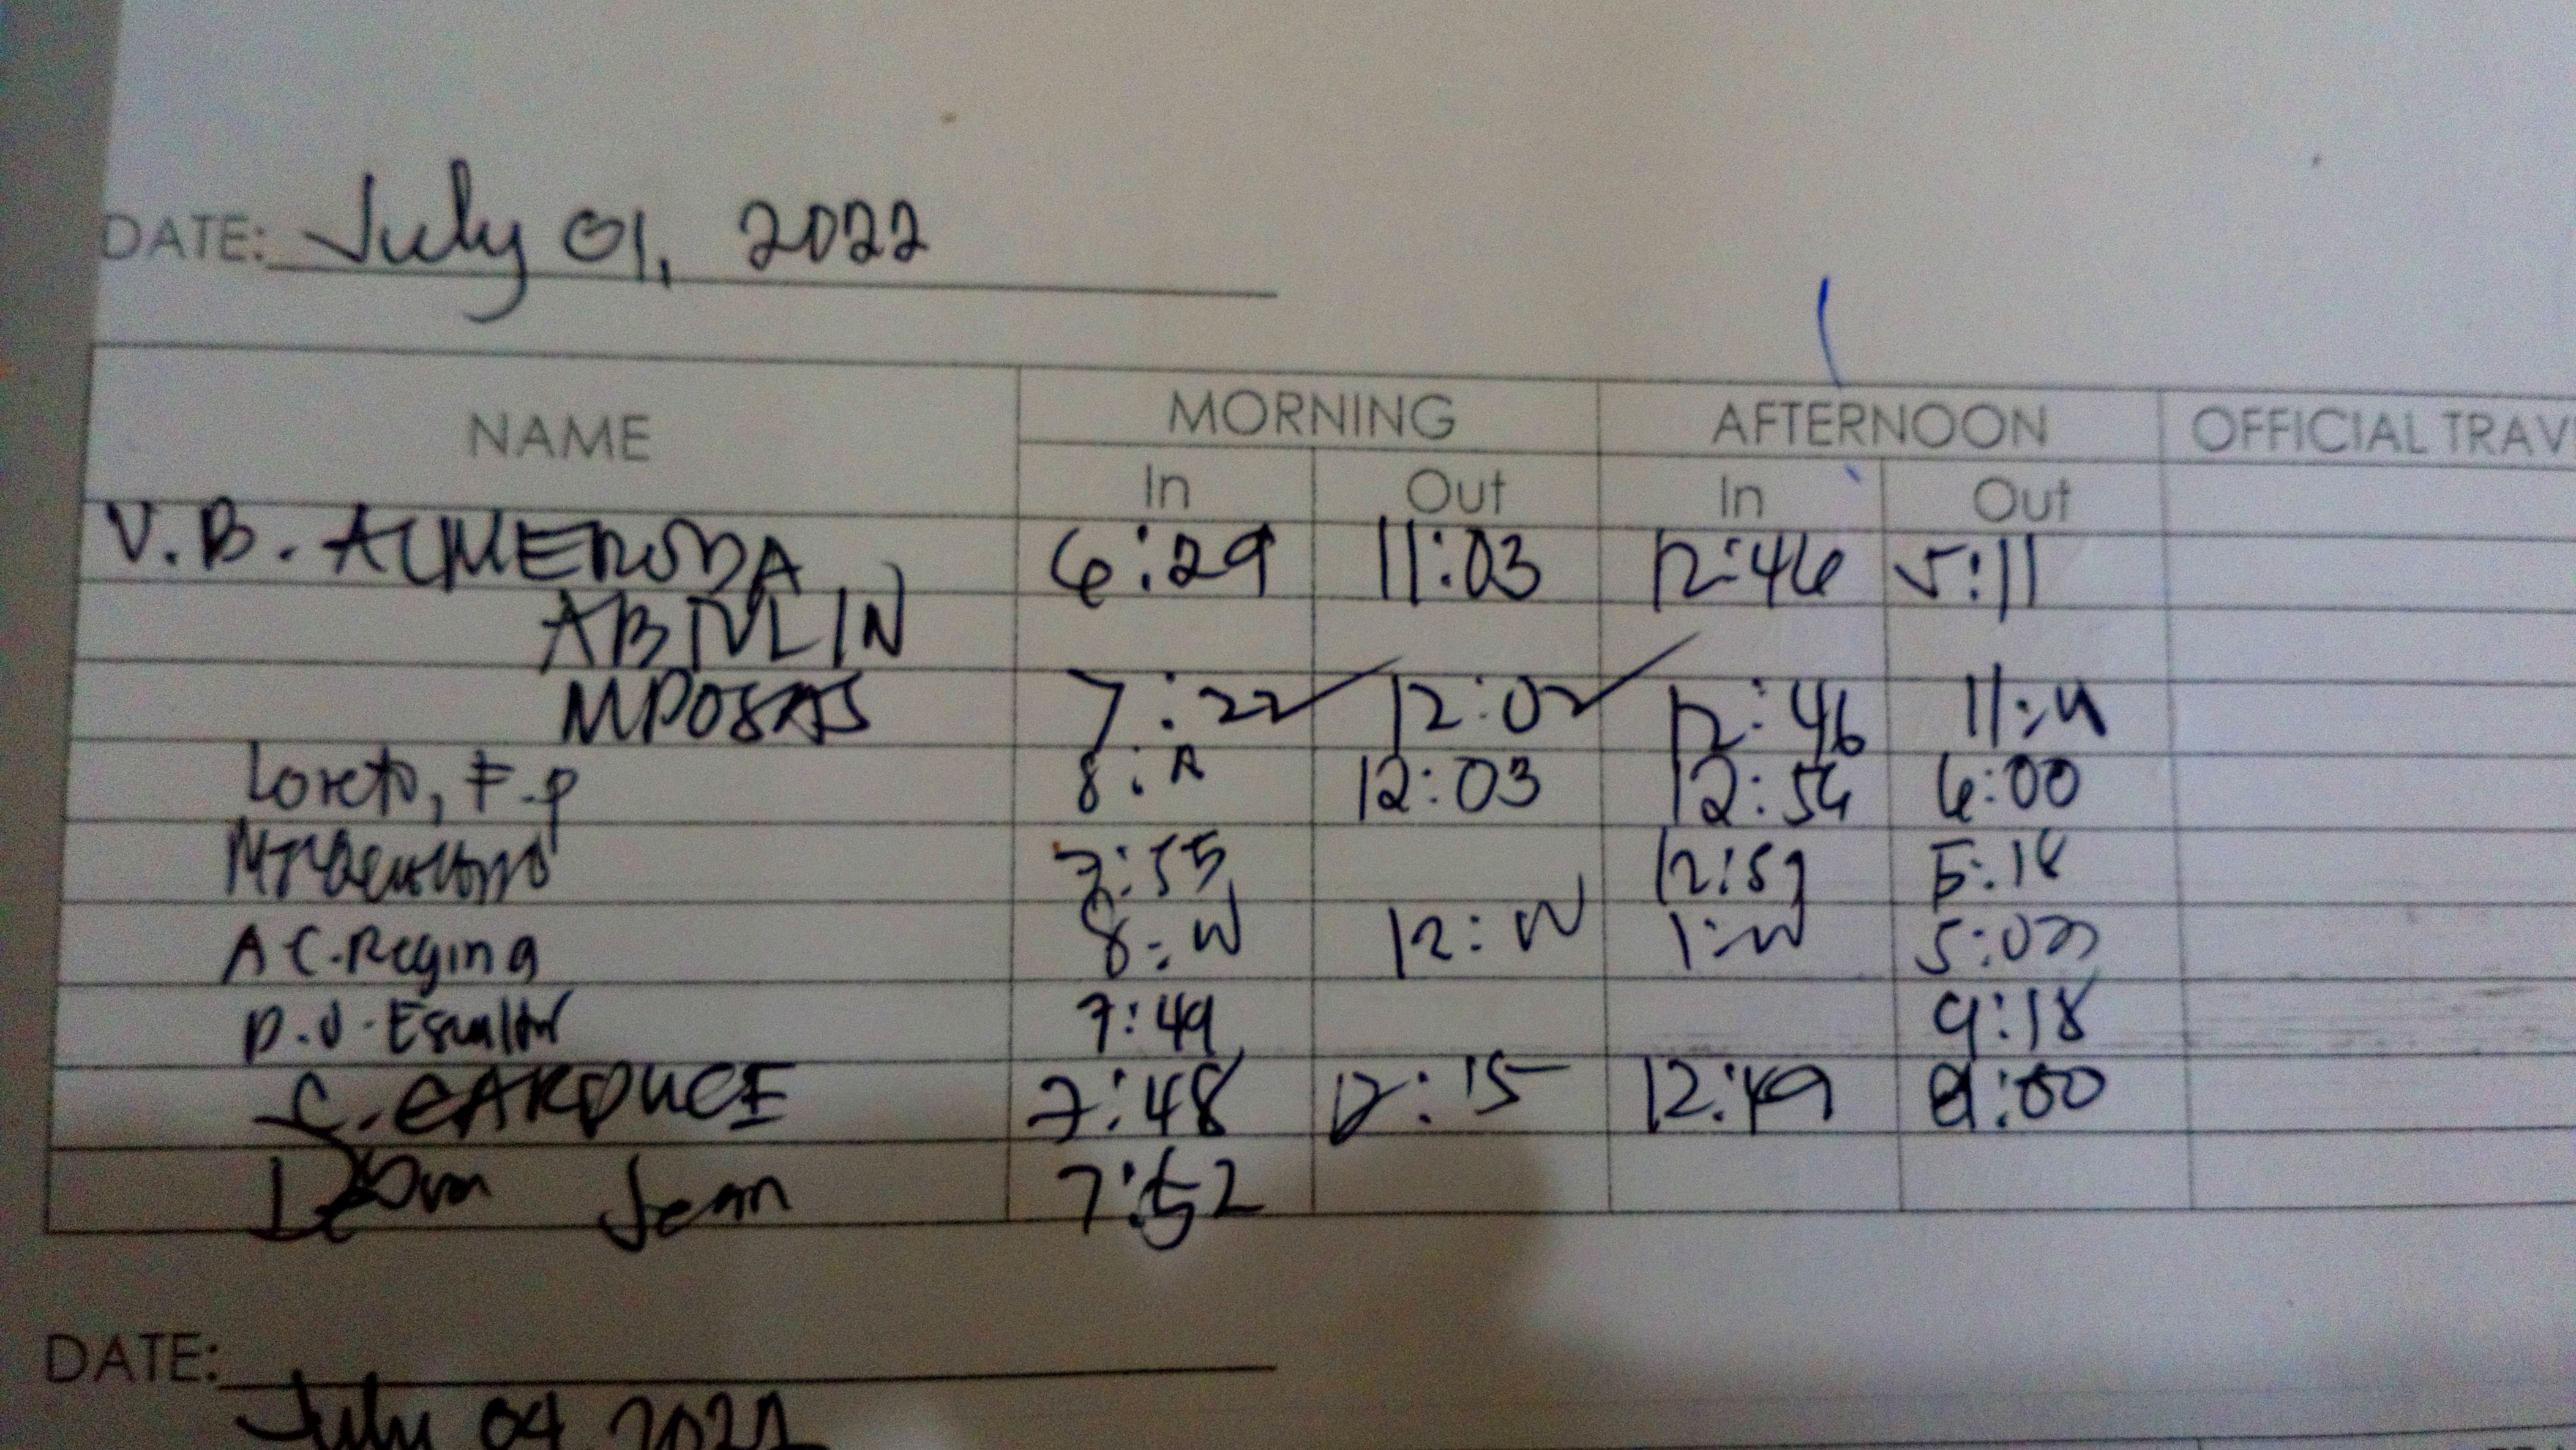 DATE: July 01, 2022
NAME MORNING AFTERNOON OFFICIAL TRAV
In Out In Out
V.B. ALMERODA 6:29 11:03 12:46 5:11
ABIVLIN
MPOSAS 7:22 12:02 12:46
Loreto, F.p 8: 12:03 12:54 6:00
7:55 12:59 5:18
A C. Regina 8: 12: 1: 5:00
D.J. Escultor 7:49 9:18
C. CARDUCE 7:48 12:15 12:49 :00
Jean 7:52
DATE:
July 04, 2022